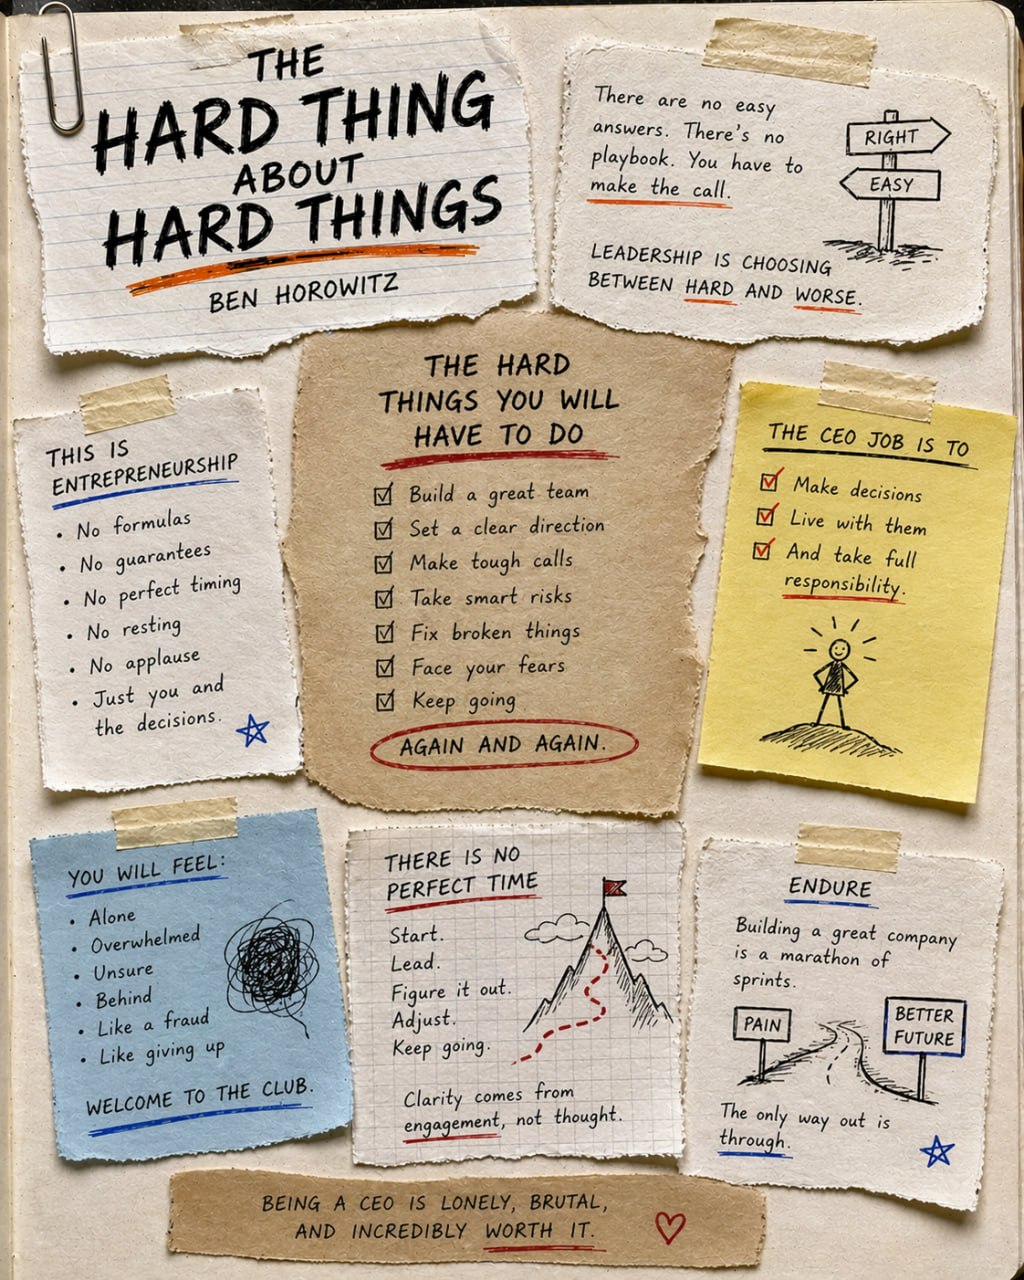 THE
HARD THING
ABOUT
HARD THINGS
BEN HOROWITZ
There are no easy
answers. There's no
playbook. You have to
make the call.
RIGHT
EASY
LEADERSHIP IS CHOOSING
BETWEEN HARD AND WORSE.
THIS IS
ENTREPRENEURSHIP
• No formulas
• No guarantees
• No perfect timing
• No resting
• No applause
• Just you and
the decisions.
THE HARD
THINGS YOU WILL
HAVE TO DO
Build a great team
Set a clear direction
Make tough calls
Take smart risks
Fix broken things
Face your fears
Keep going
AGAIN AND AGAIN.
THE CEO JOB IS TO
Make decisions
Live with them
And take full
responsibility.
YOU WILL FEEL:
• Alone
• Overwhelmed
• Unsure
• Behind
• Like a fraud
• Like giving up
WELCOME TO THE CLUB.
THERE IS NO
PERFECT TIME
Start.
Lead.
Figure it out.
Adjust.
Keep going.
Clarity comes from
engagement, not thought.
ENDURE
Building a great company
is a marathon of
sprints.
PAIN
BETTER
FUTURE
The only way out is
through.
BEING A CEO IS LONELY, BRUTAL,
AND INCREDIBLY WORTH IT.